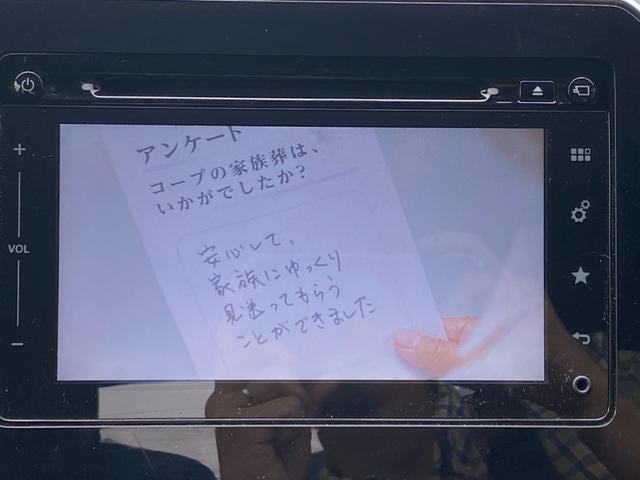 アンケート
コープの家族葬は、
いかがでしたか?
安心して、
家族にゆっくり
見送ってもらう
ことができました
+
VOL
−